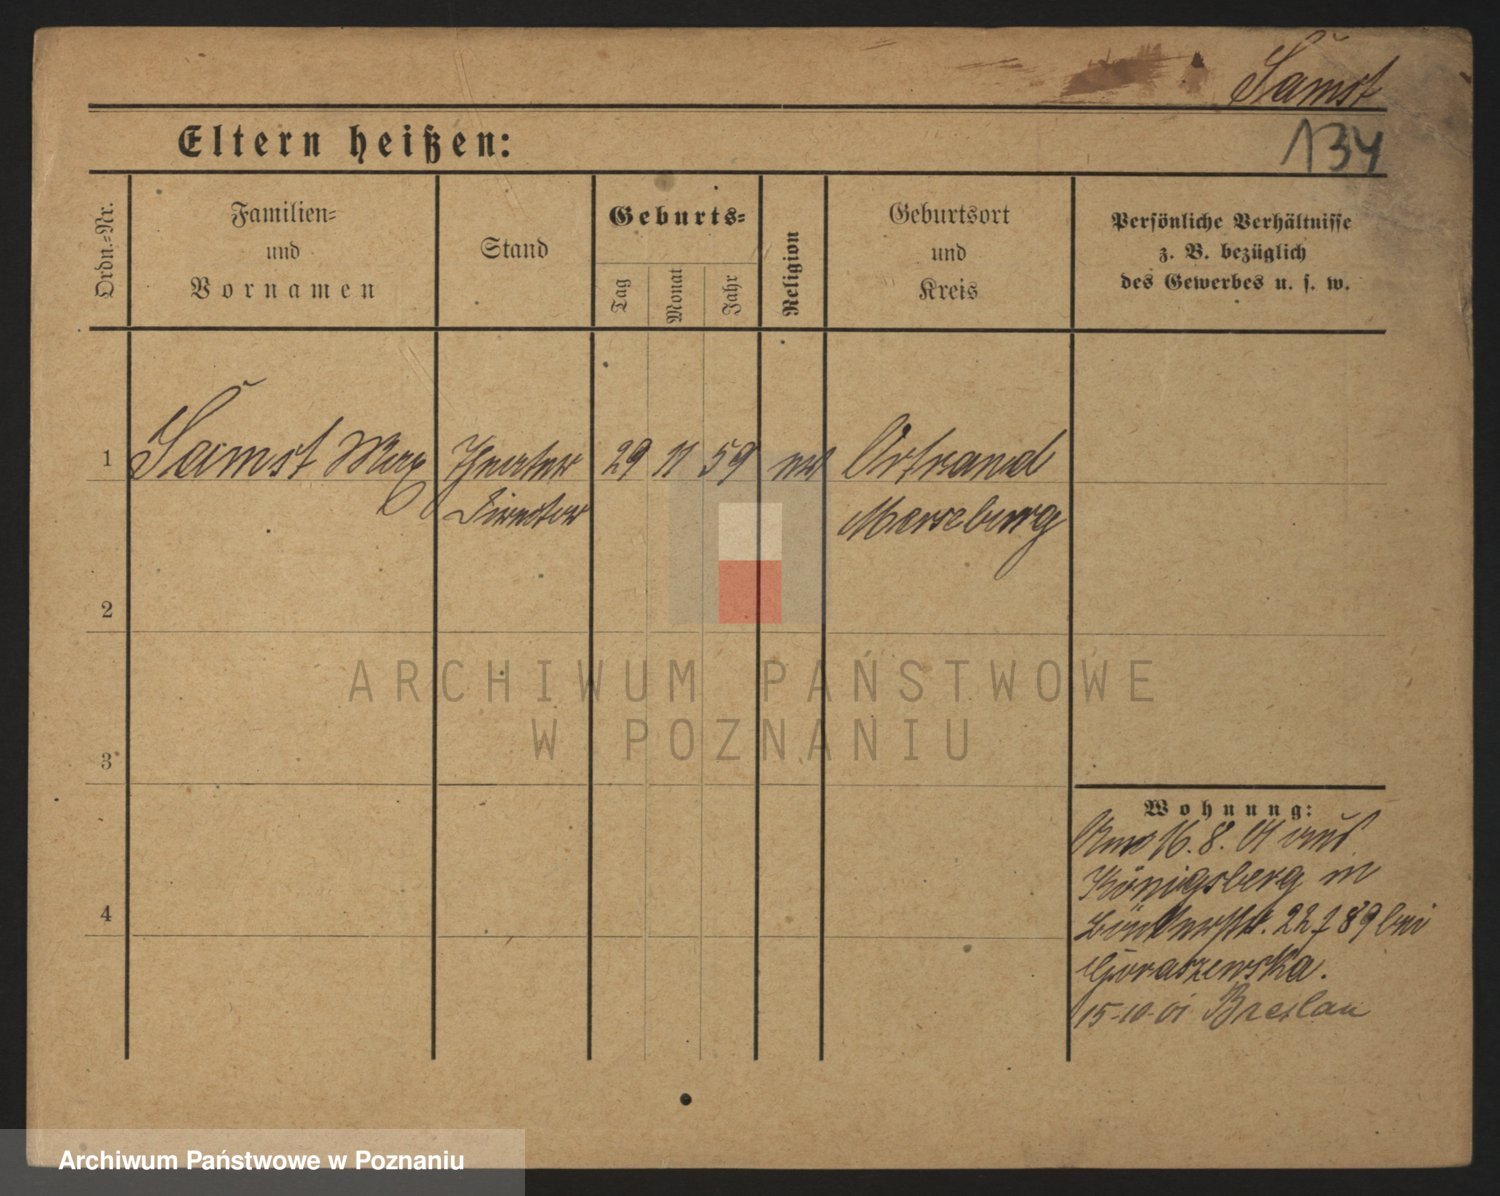 Samst
134
Eltern heißen:
Ordn.-Nr.
Familien-
und
Vornamen
Stand
Geburts-
Tag
Monat
Jahr
Religion
Geburtsort
und
Kreis
Persönliche Verhältnisse
z. B. bezüglich
des Gewerbes u. s. w.
1 Samst Max Theater 29 11 59 ev Ortrand
Director Merseburg
2
3
4
Wohnung:
16.8.01 aus
Königsberg in
22 89 bei
Goraszewska.
15-10-01 Breslau
ARCHIWUM PAŃSTWOWE
W POZNANIU
Archiwum Państwowe w Poznaniu